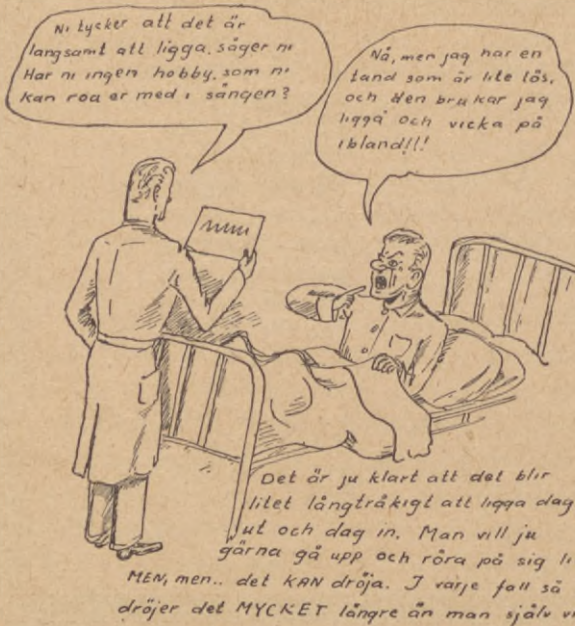 Ni tycker att det är
langsamt att ligga, säger ni
Har ni ingen hobby, som ni
kan roa er med i sängen?
Nå, men jag har en
tand som är lite lös,
och den brukar jag
ligga och vicka på
ibland!!!
Det är ju klart att det blir
litet långtråkigt att ligga dag
ut och dag in. Man vill ju
gärna gå upp och röra på sig
MEN, men.. det KAN dröja. I varje fall så
dröjer det MYCKET längre än man själv